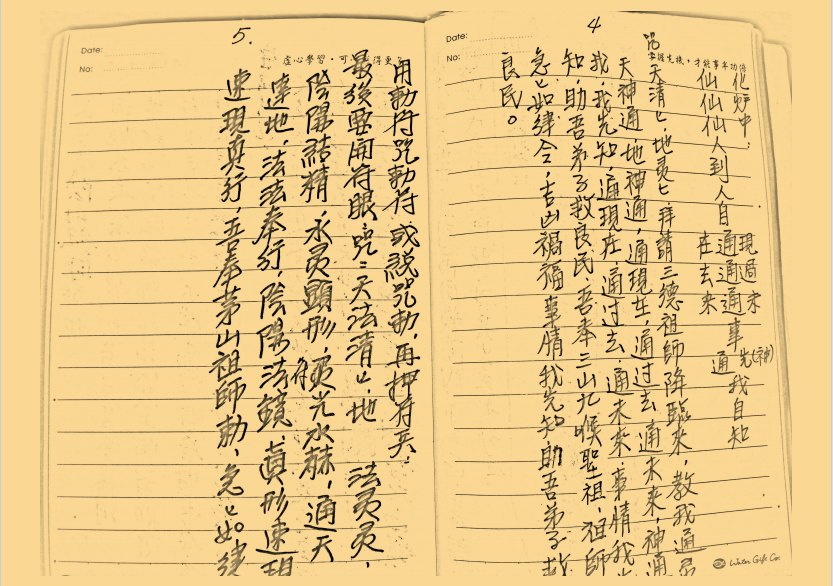 4
No:
Date:
掌握先機，才能事半功倍
咒
化爐中:
仙仙仙人到人自
通通通
現過未
在去來
事
先(神)
通
我自知
天清々，地灵々，拜請三德祖師降臨來，教我通灵
天神通地神通，通現在，通过去，通未來，神通
我，我先知，通現在，通过去，通未來，事情我先
知，助吾弟子救良民，吾奉三山九喉聖祖，祖師
急々如律令，吉凶禍福事情我先知助吾弟子救
良民。
5.
Date:
No:
虛心學習，可 得更多
用勅符咒勅符或說咒勅，再押符矣.
最後要開符眼，咒:天法清々，地法灵灵，
陰陽結精，水灵顕形，灵光水 ，通天
達地，法法奉行，陰陽法鏡，真形速現
速現真行，吾奉茅山祖師勅，急々如律
Water Gift Co